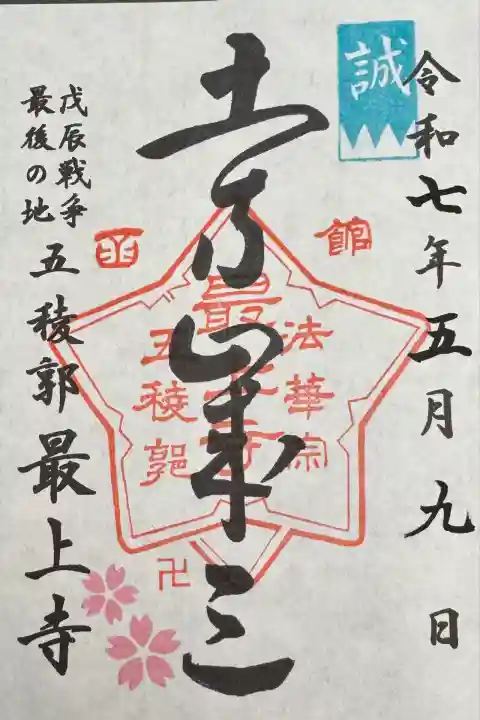 令和七年五月九日
誠
土方歳三
函館
法華宗
最上寺
五稜郭
卍
戊辰戦争
最後の地
五稜郭 最上寺